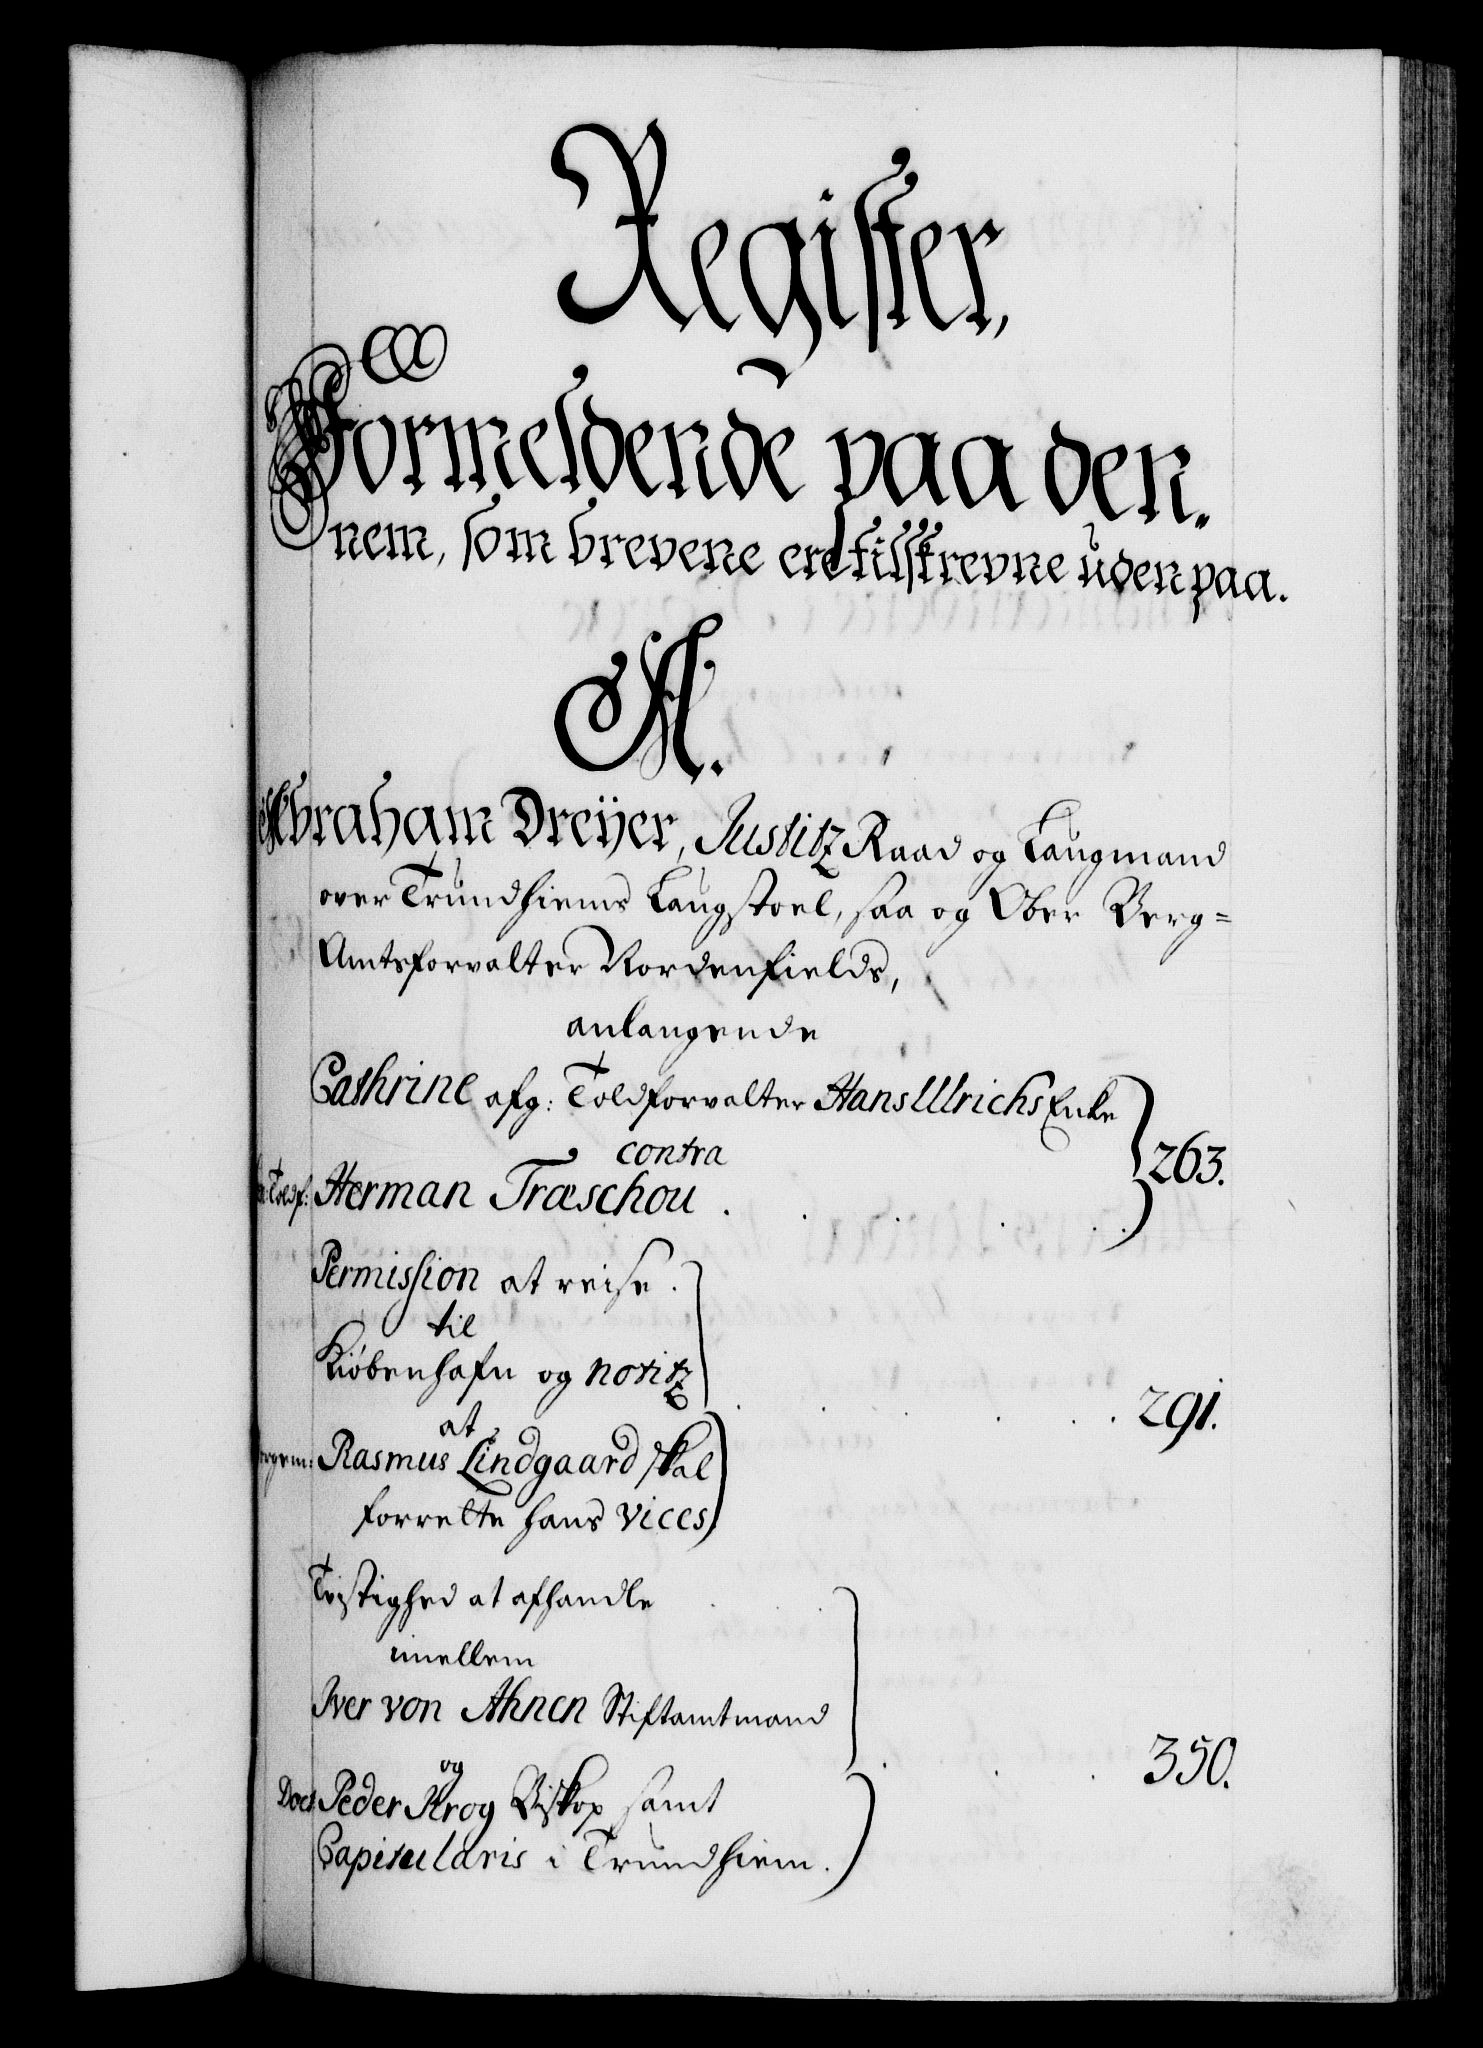 Register,
Formeldende paa den.
nem, som brevene ere tilskrevne uden paa.
A.
Abraham Dreÿer, Justitz Raad og Laugmand
over Trundhiems Laugstoel, saa og Ober Berg=
Amtsforvalter Nordenfields,
anlangende
Cathrine afg: Toldforvalter Hans Ulrichs Enke
contra
Toldf: Herman Træschou
263.
Permission at reise
til
Kiøbenhafn og notitz
291.
at
Rasmus Lindgaard skal
forrette hans vices
Tristighed at afhandle
imellem
Iver von Ahnen Stiftamtmand
og
350.
Doct Peder Krog Biskop samt
Capitularis i Trundhiem.